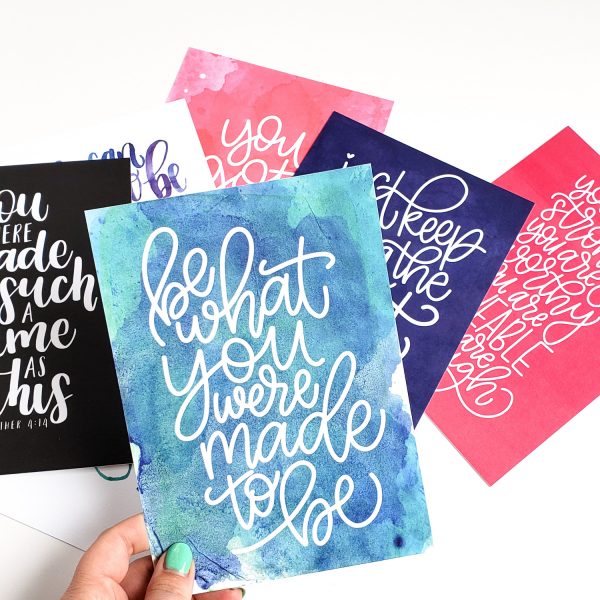 be
what
you
were
made
to be
ou
ERE
ade
such
A
ime
AS
this
THER 4:14
can
to be
you
got
st keep
the
you
you are
are